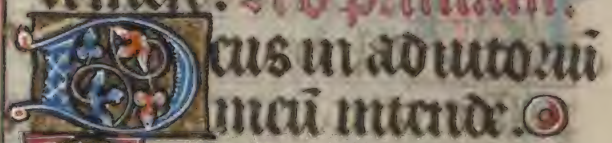 Deus in adiutoriū
meū intende.